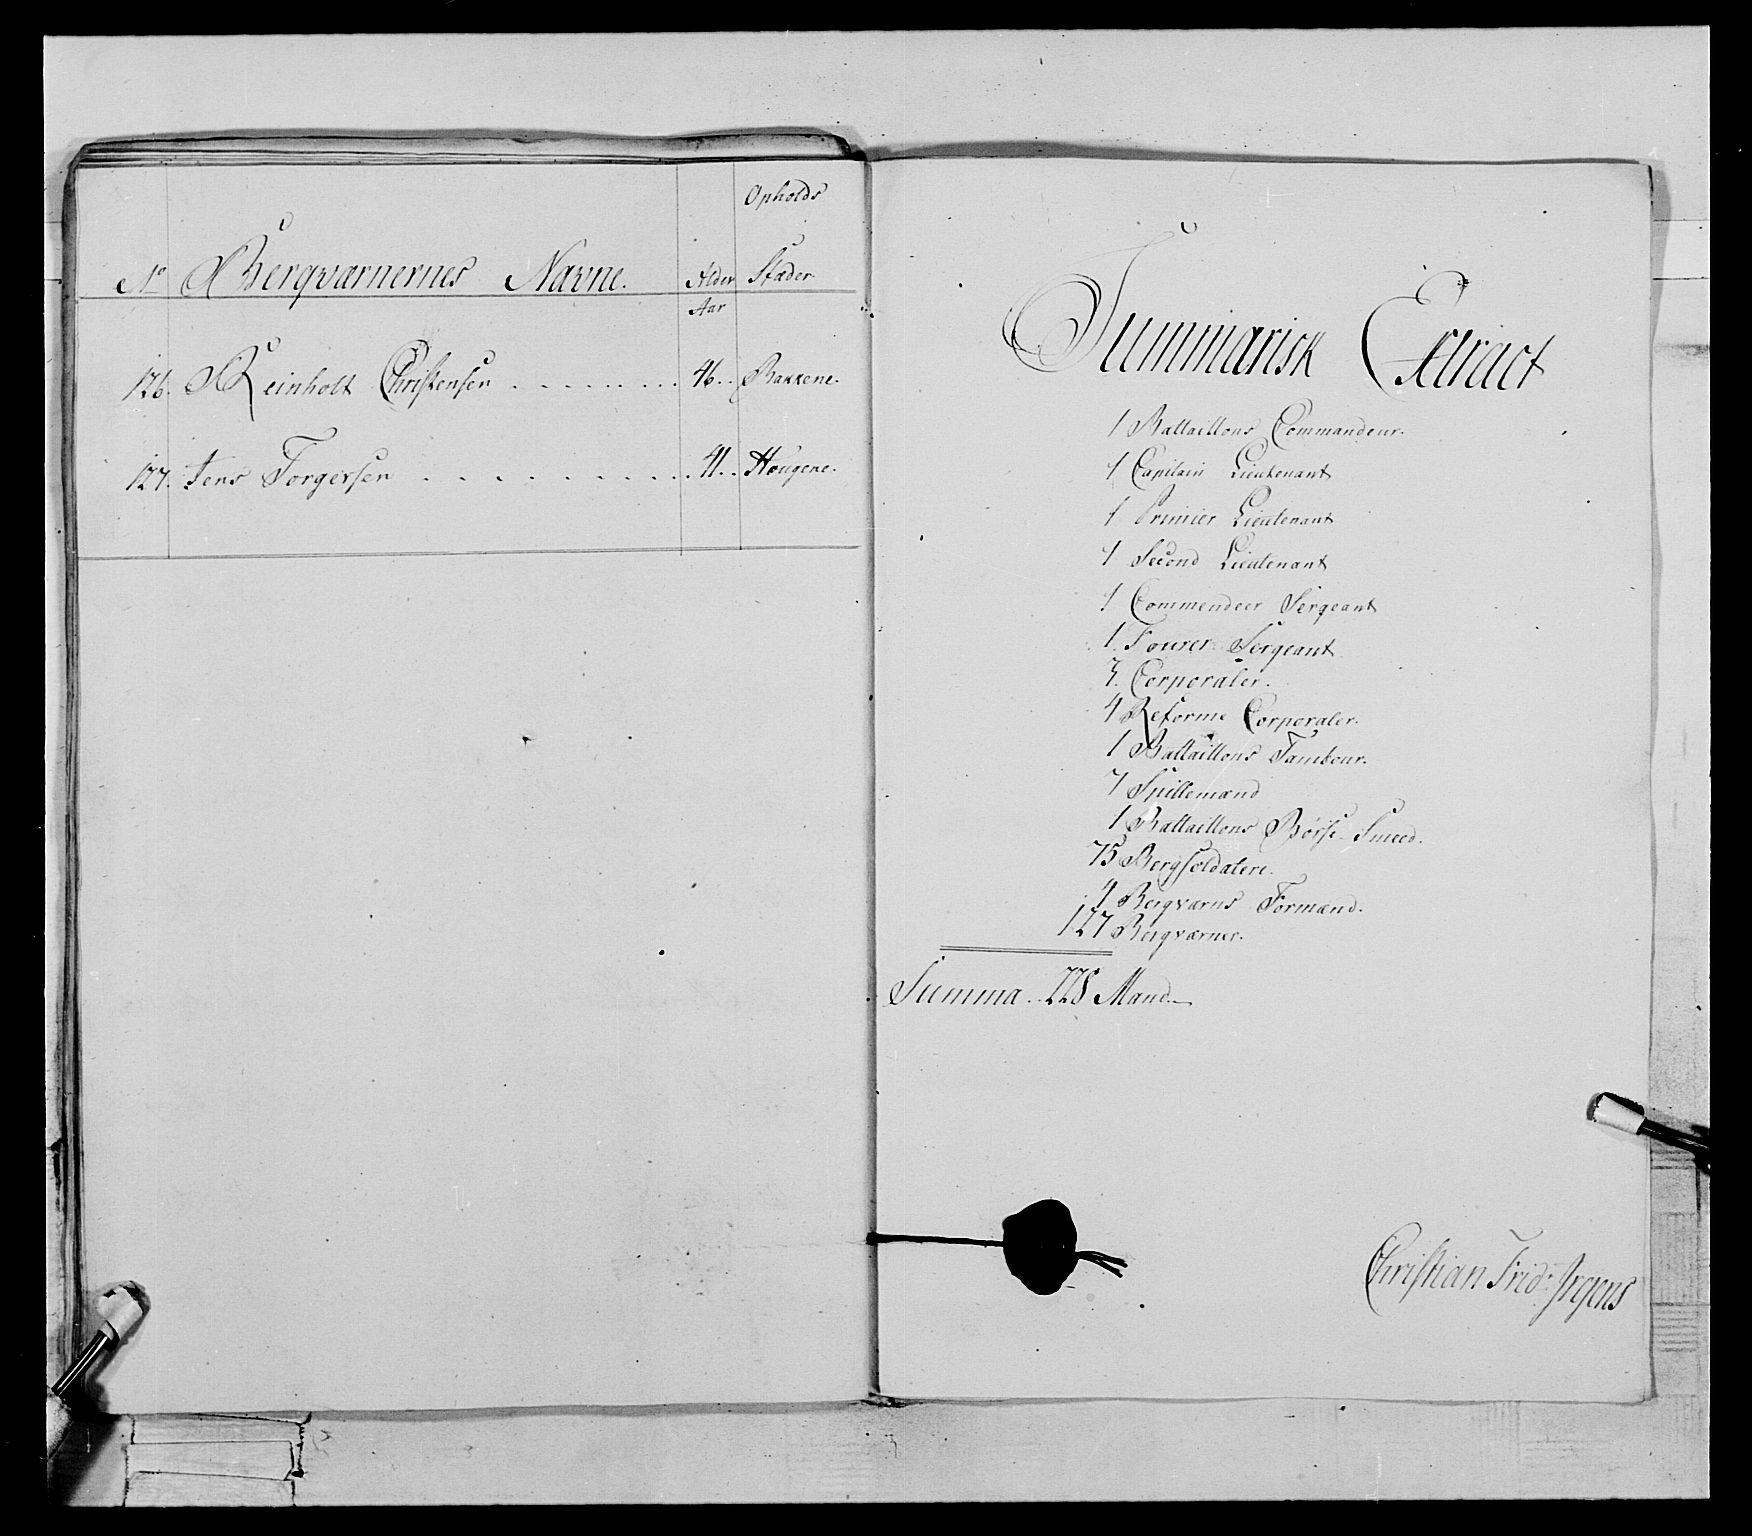 Opholds
No Bergværnernes Navne. Alder Stæder
Aar
126. Reinholt Christensen . . . . . . . . 46. . Bakkene.
127. Jens Torgersen . . . . . . . . . . . 41. . Hougene.
Summarisk Extract
1 Battaillons Commandeur.
1 Capitain Lieutenant
1 Primier Lieutenant
1 Second Lieutenant
1 Commendeer Sergeant
1. Fourer Sergeant
3. Corporaler.
4 Reforme Corporaler.
1 Battaillons Tambour.
7 Spillemænd
1 Battaillons Børse-Smeed.
75 Bergsoldatere.
4 Bergværns Formænd.
127 Bergværner.
Summa. 228 Mand.
Christian Frid: Irgens